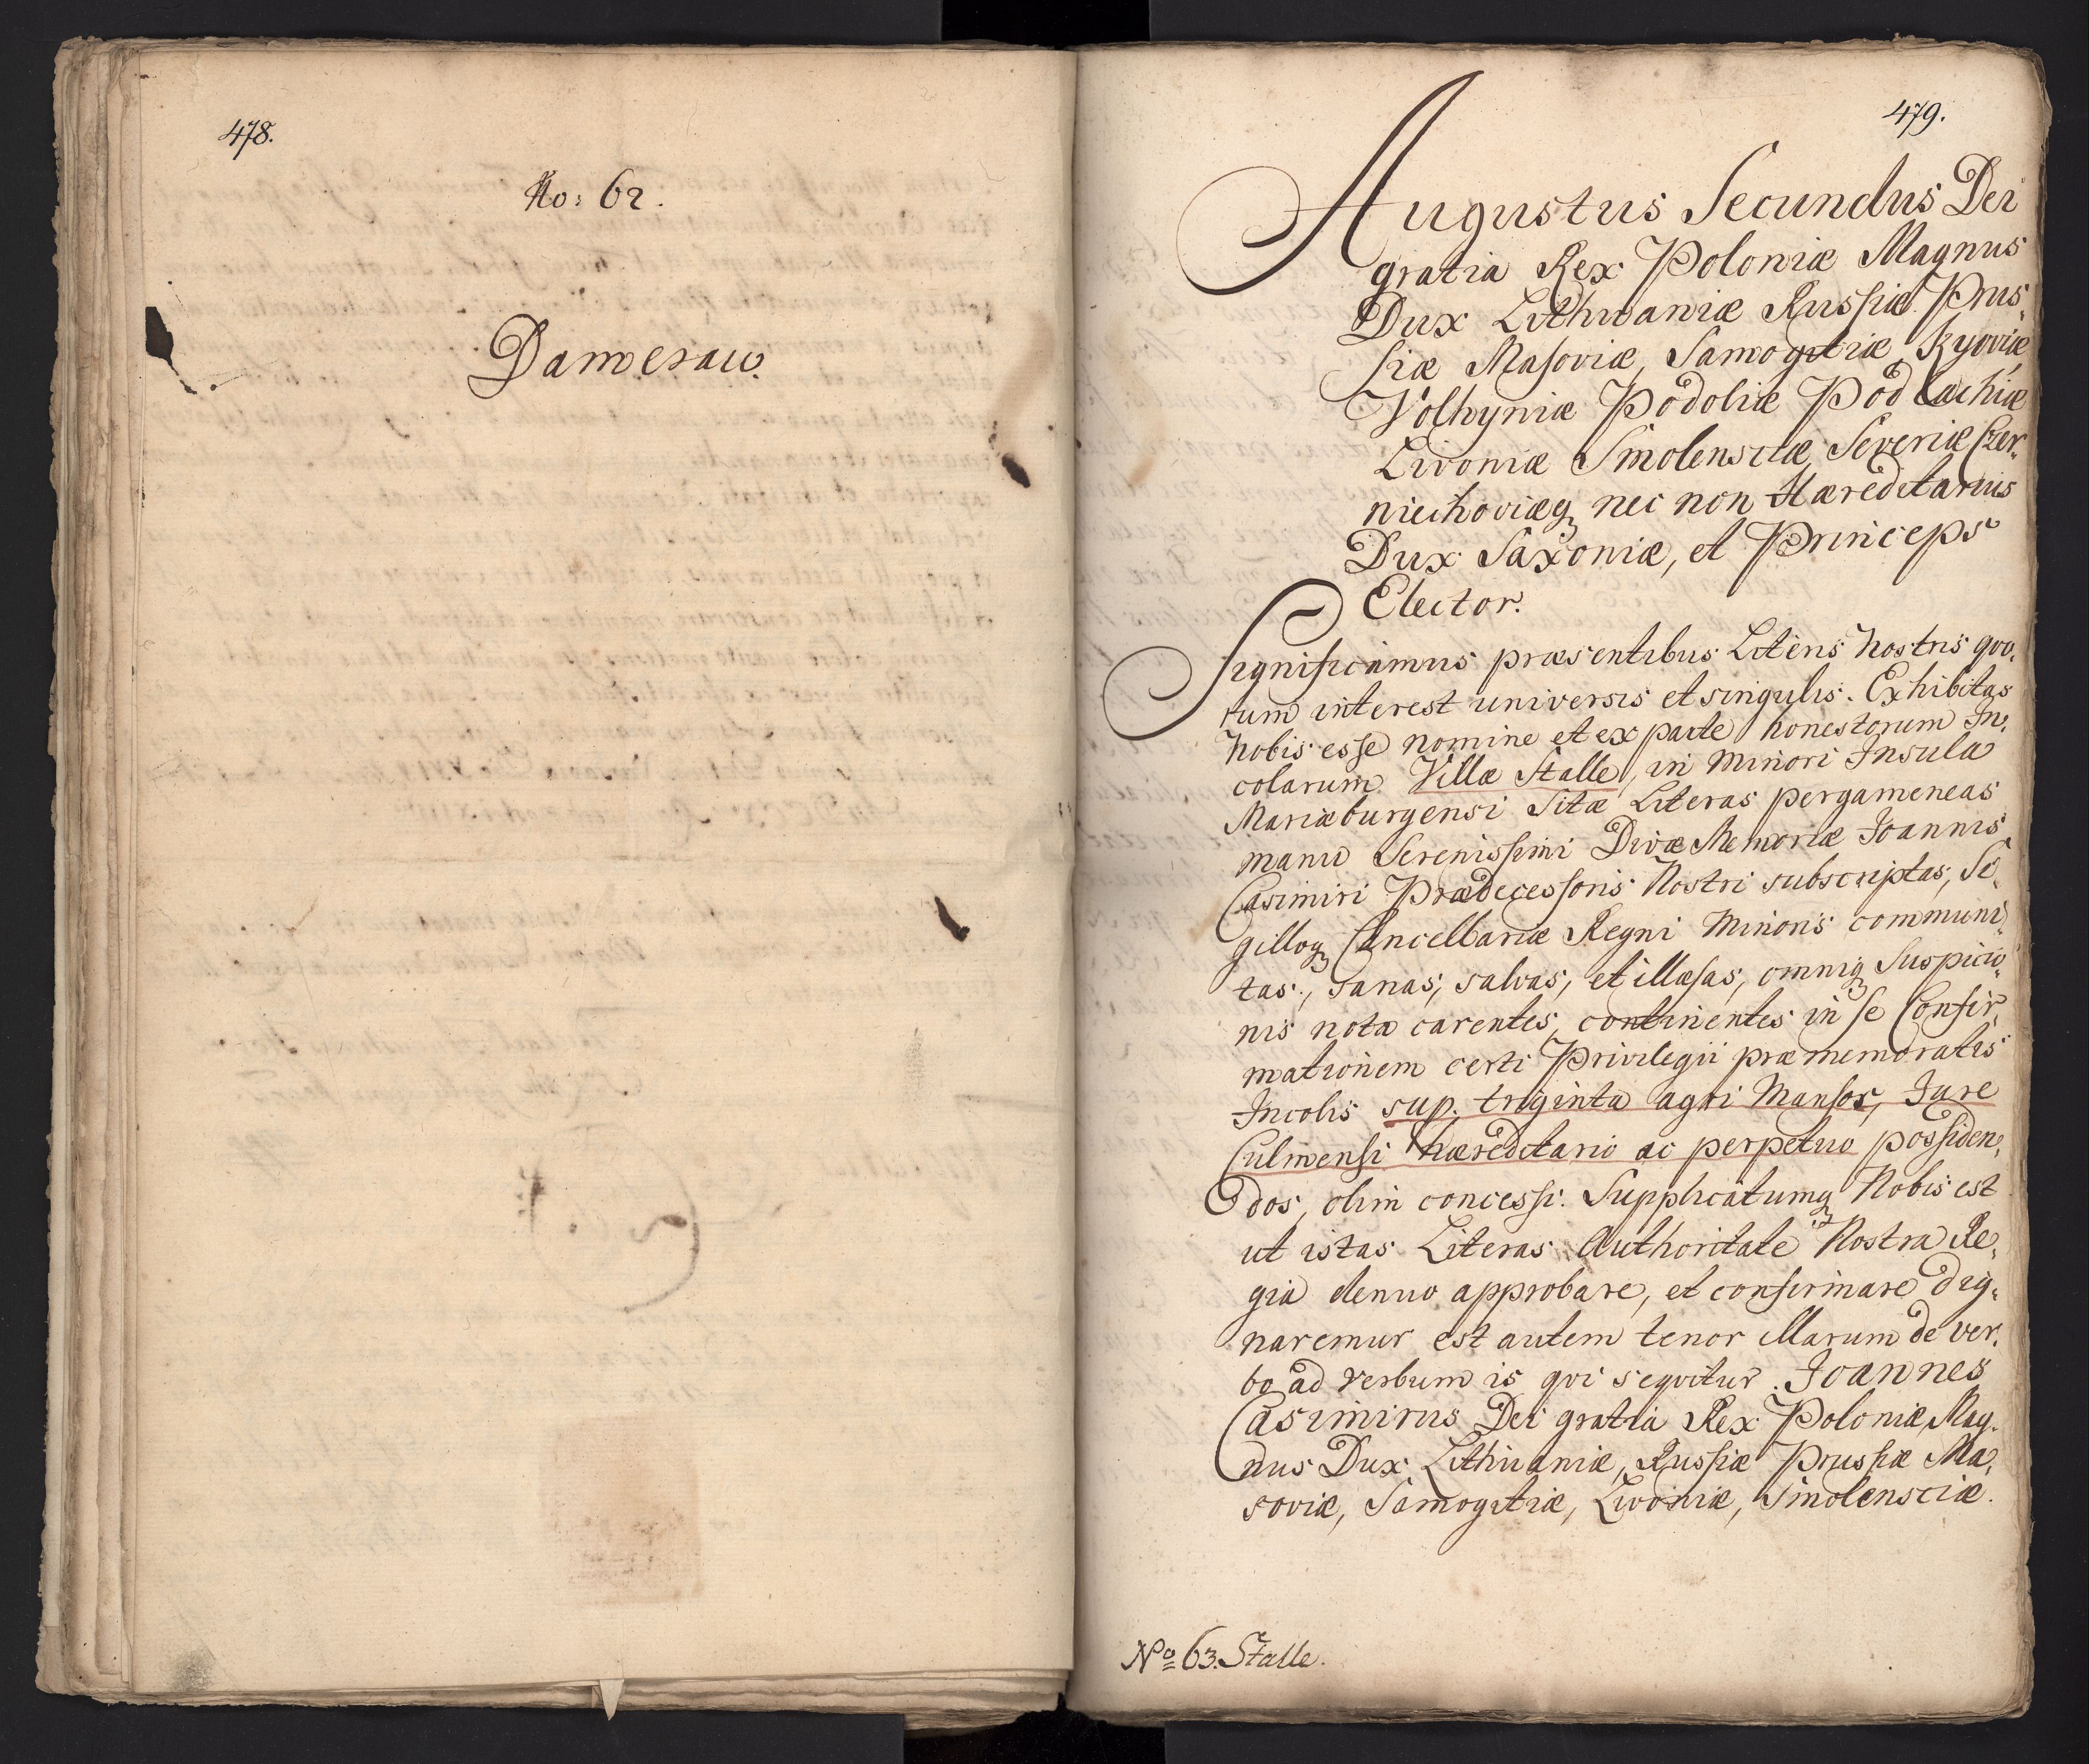 478.
No: 62.
Damerau.
479.
Augustus Secundus Dei
gratia Rex Poloniæ Magnus
Dux Lithvaniæ Russiæ Prus„
siæ Masoviæ, Samogitiæ, Kyoviæ
Volhyniæ Podoliæ Podlachiæ
Livoniæ Smolensciæ Severiæ Czer„
niechoviæq nec non Hæreditarius
Dux Saxoniæ, et Princeps
Elector.
Significamus præsentibus Literis Nostris quo„
rum interest universis et singulis. Exhibitas
Nobis esse nomine et ex parte honestorum In„
colarum Villæ Stalle, in Minori Insula
Mariæburgensi Sitæ Literas pergameneas
manu Serenissimi Divæ Memoriæ Joannis
Casimiri Prædecessoris Nostri subscriptas, Si„
gilloq Cancellariæ Regni Minoris communi„
tas, sanas, salvas, et illæsas, omniq Suspicio„
nis nota carentes, continentes in se Confir„
mationem certi Privilegii præmemoratis
Incolis sup. triginta agri Mansos, Jure
Culmensi hæreditario ac perpetuo possiden„
dos, olim concessi. Supplicatumq Nobis est
ut istas Literas Authoritate Nostra Re„
gia denuo approbare, et confirmare dig„
naremur est autem tenor illarum de ver„
bo ad verbum is qvi seqvitur. Joannes
Casimirus Dei gratia Rex Poloniæ, Mag„
nus Dux Lithuaniæ, Russiæ Prussiæ Ma„
soviæ, Samogitiæ, Livoniæ, Smolensciæ.
No 63. Stalle.